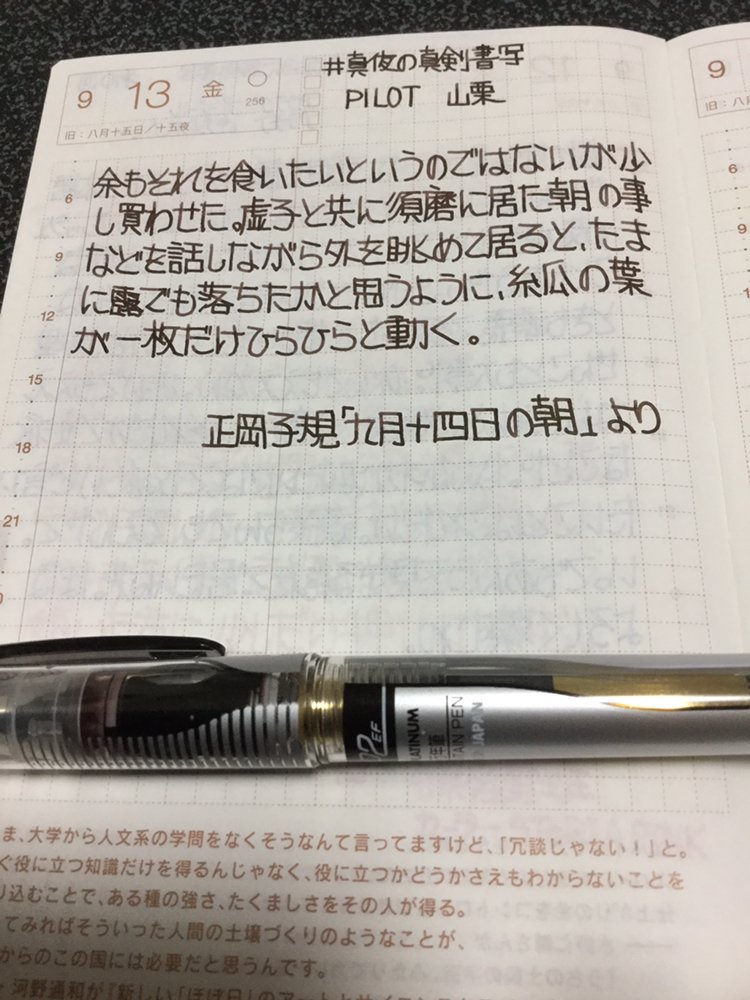 9 13 金 ○
256
旧：八月十五日／十五夜
#真夜の真剣書写
PILOT 山栗
9
旧：八
余もそれを食いたいというのではないが少
し買わせた。虚子と共に須磨に居た朝の事
などを話しながら外を眺めて居ると、たま
に露でも落ちたかと思うように、糸瓜の葉
が一枚だけひらひらと動く。
正岡子規「九月十四日の朝」より
6
9
12
15
18
21
6
9
EF
PLATINUM
万年筆
TAIN PEN
JAPAN
ま、大学から人文系の学問をなくそうなんて言ってますけど、「冗談じゃない！」と。
ぐ役に立つ知識だけを得るんじゃなく、役に立つかどうかさえもわからないことを
り込むことで、ある種の強さ、たくましさをその人が得る。
てみればそういった人間の土壌づくりのようなことが、
からのこの国には必要だと思うんです。
河野通和が『新しい「ほぼ日」のアートとサイエンス